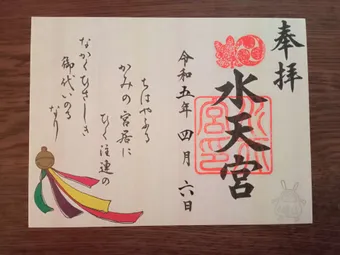 奉拝
水天宮
令和五年四月六日
ちはやふる
かみの宮居に
ひく注連の
なかくひさしき
御代いのる
なり